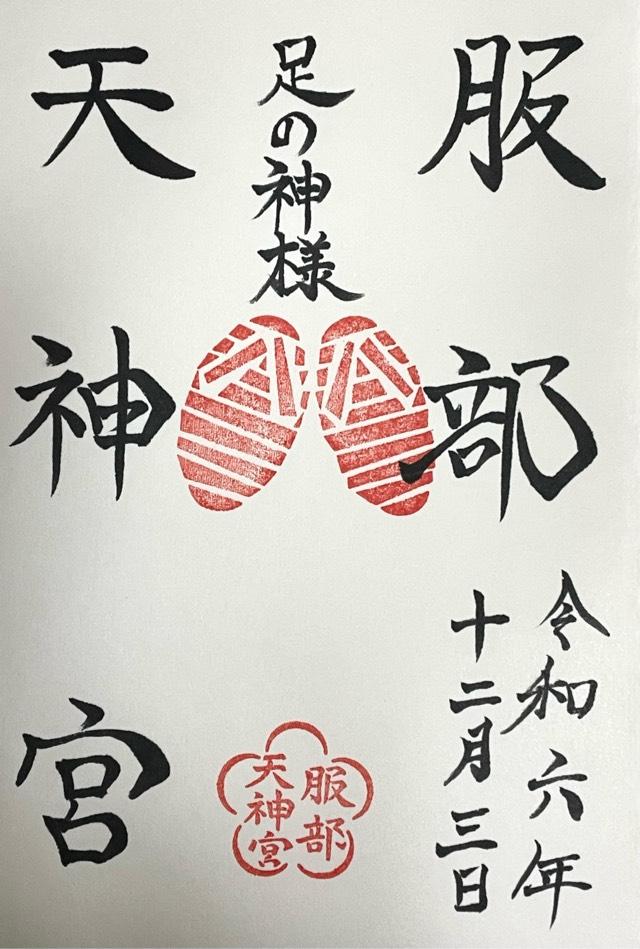 服部
天神宮
足の神様
令和六年
十二月三日
服部
天神宮